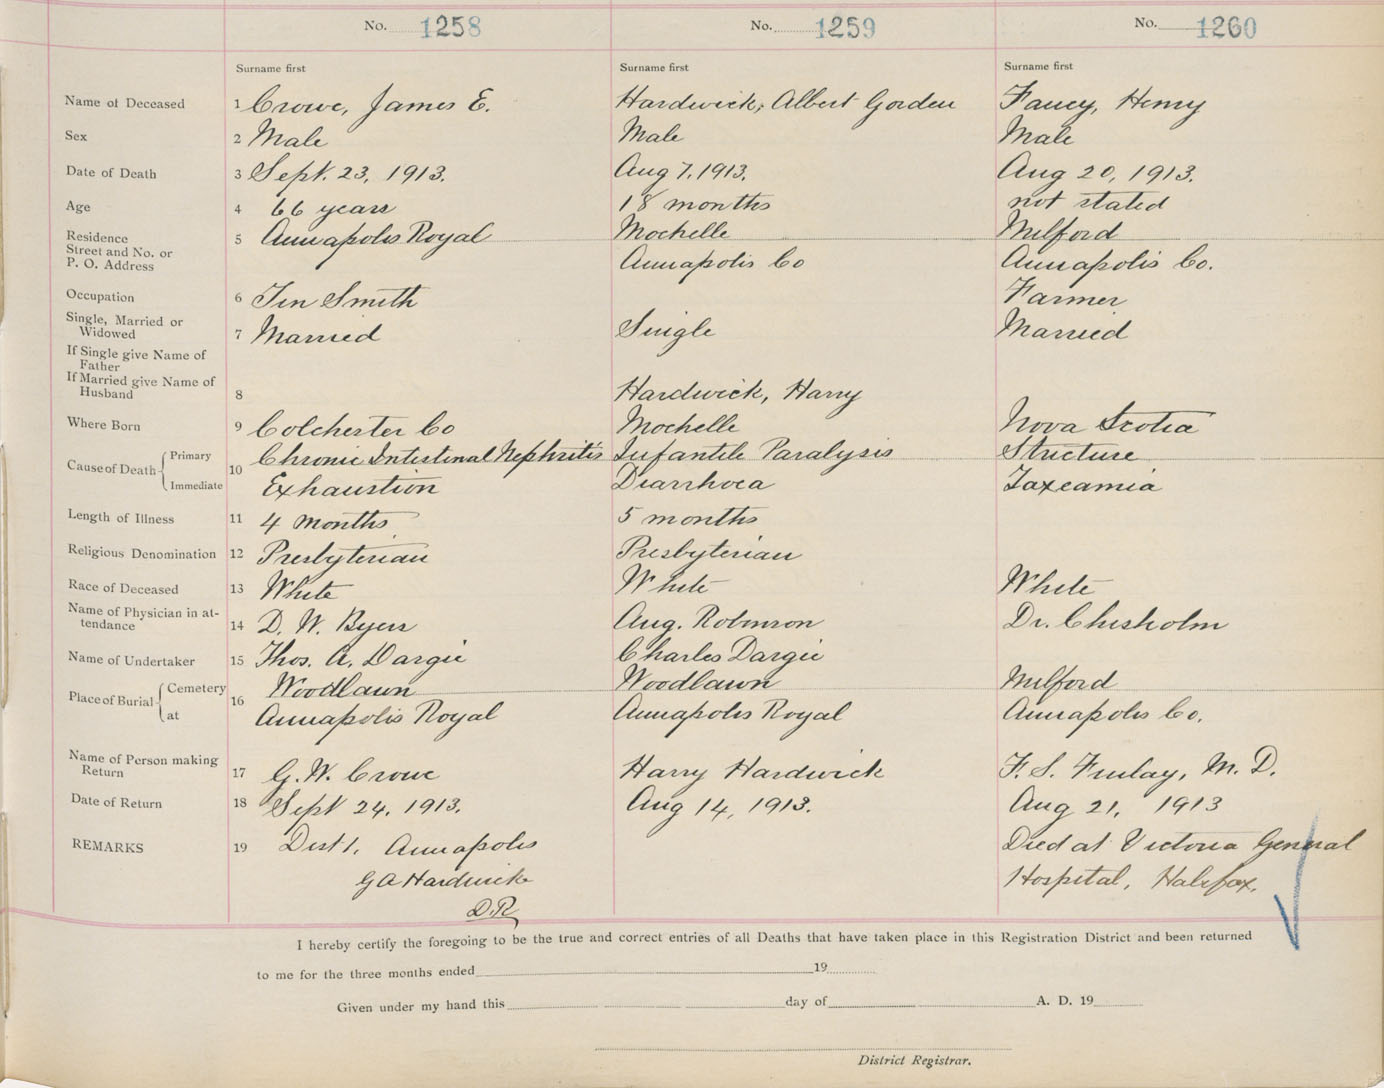 No. 1258 No. 1259 No. 1260
Surname first Surname first Surname first
Name of Deceased 1 Crowe, James E. Hardwick, Albert Gorden Fancy, Henry
Sex 2 Male Male Male
Date of Death 3 Sept. 23, 1913. Aug 7, 1913. Aug 20, 1913.
Age 4 66 years 18 months not stated
Residence
Street and No. or
P. O. Address
5 Annapolis Royal Mochelle Milford
Annapolis Co Annapolis Co.
Occupation 6 Tin Smith Farmer
Single, Married or
Widowed
7 Married Single Married
If Single give Name of
Father
If Married give Name of
Husband
8 Hardwick, Harry
Where Born 9 Colchester Co Mochelle Nova Scotia
Cause of Death Primary 10 Chronic Intestinal Nephritis Infantile Paralysis Stricture
Immediate Exhaustion Diarrhoea Toxeamia
Length of Illness 11 4 months 5 months
Religious Denomination 12 Presbyterian Presbyterian
Race of Deceased 13 White White White
Name of Physician in at-
tendance
14 D. W. Byers Aug. Robinson Dr. Chisholm
Name of Undertaker 15 Thos. A. Dargie Charles Dargie
Place of Burial Cemetery 16 Woodlawn Woodlawn Milford
at Annapolis Royal Annapolis Royal Annapolis Co.
Name of Person making
Return
17 G. W. Crowe Harry Hardwick F. S. Finlay, M. D.
Date of Return 18 Sept 24, 1913. Aug 14, 1913. Aug 21, 1913
REMARKS 19 Dist 1. Annapolis Died at Victoria General
G A Hardwicke Hospital, Halifax.
D.R
I hereby certify the foregoing to be the true and correct entries of all Deaths that have taken place in this Registration District and been returned
to me for the three months ended 19
Given under my hand this day of A. D. 19
District Registrar.